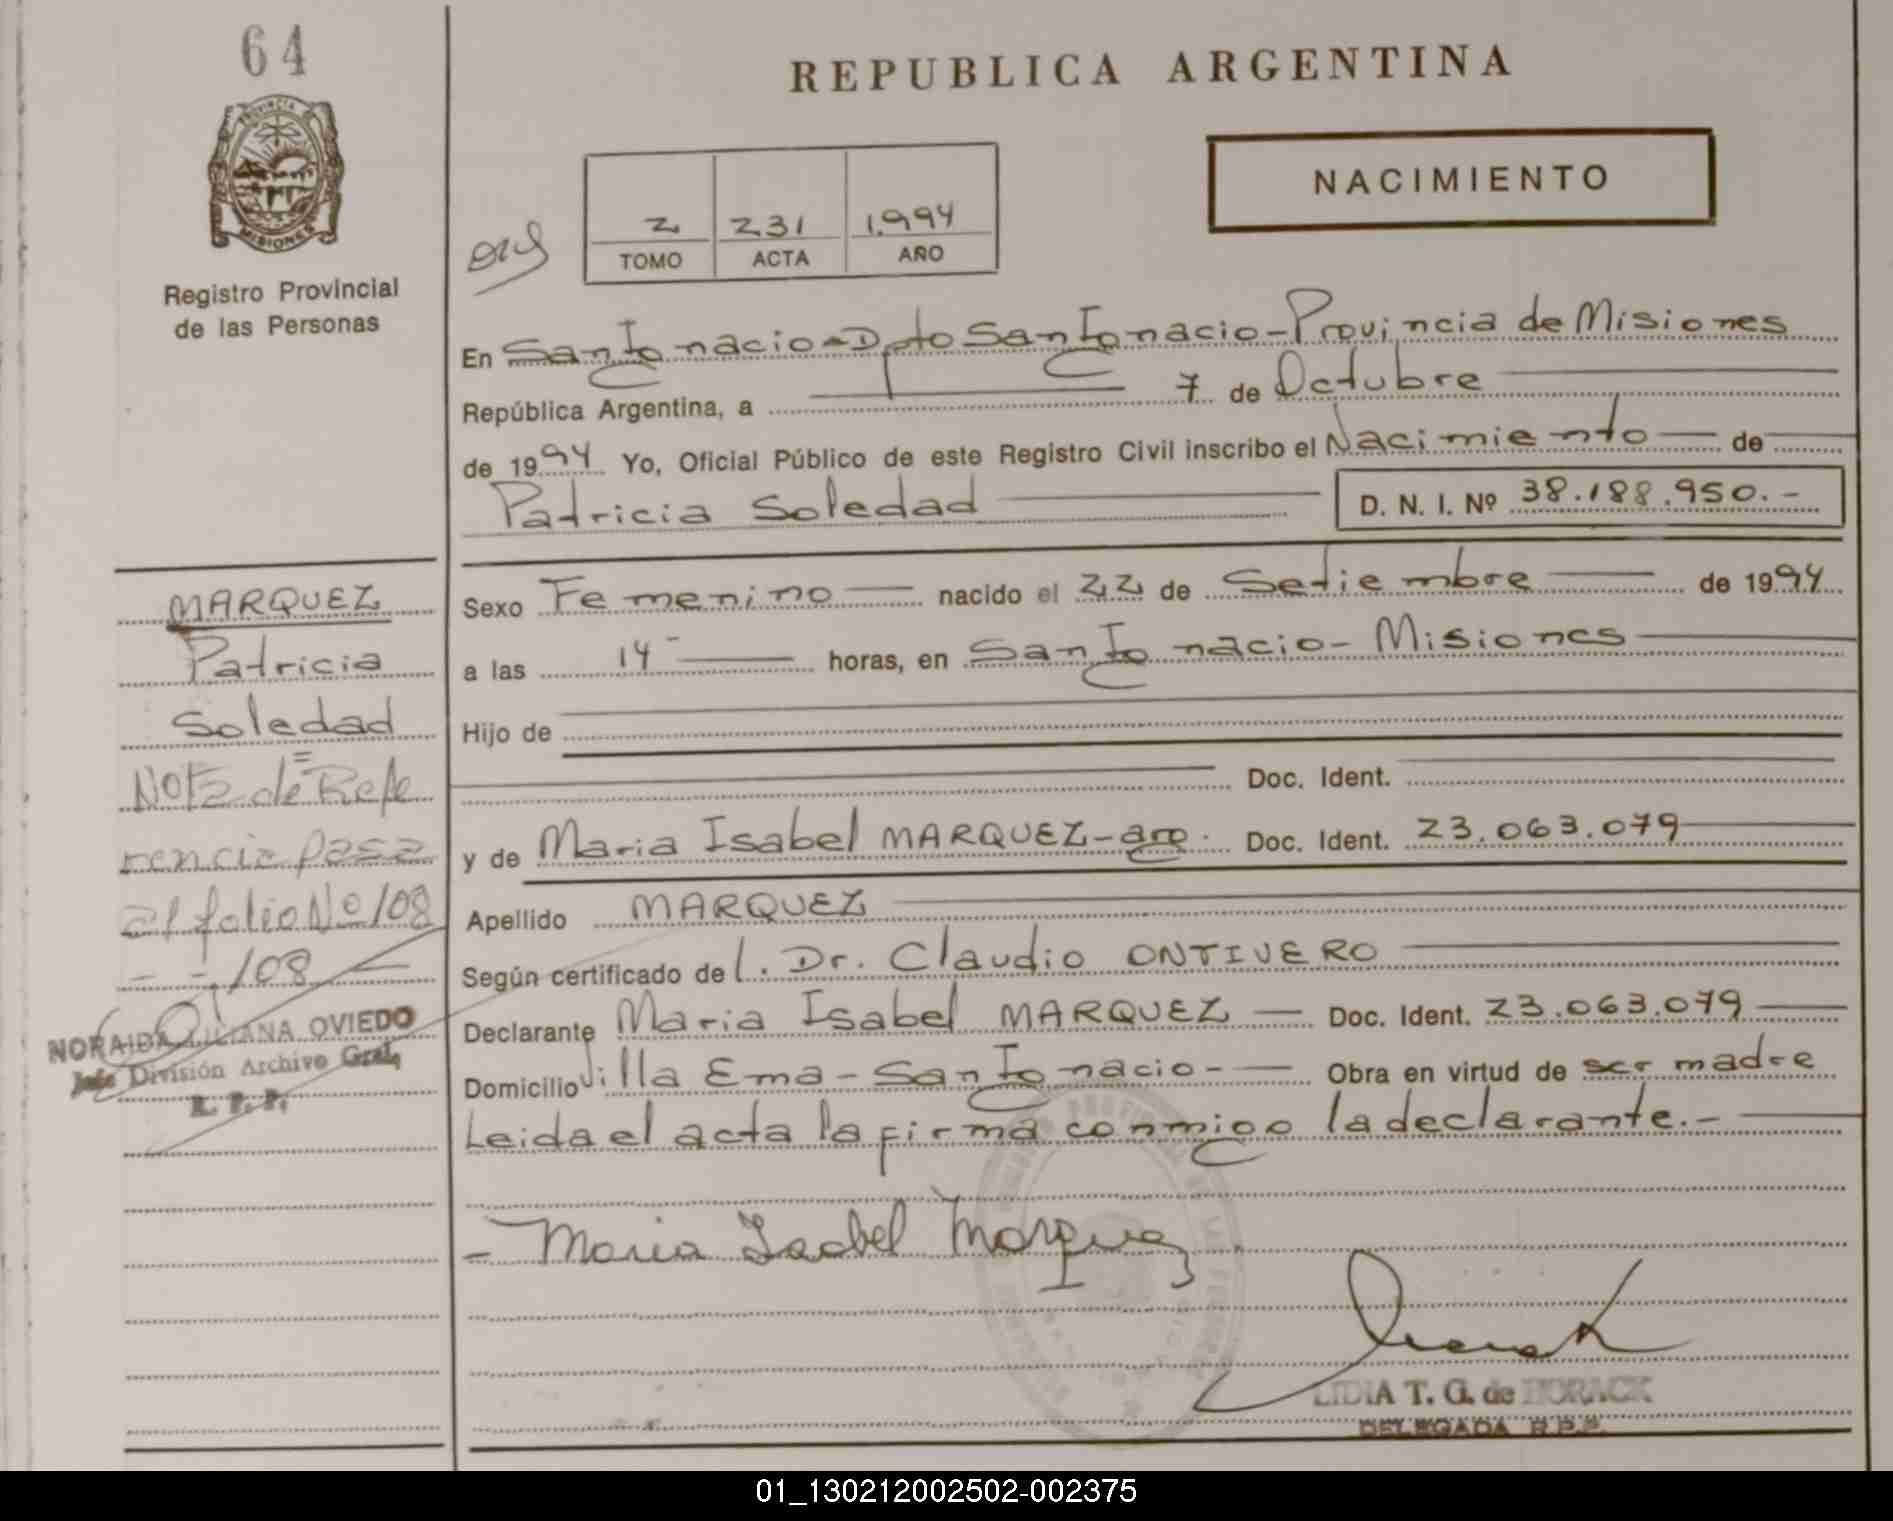 64
PROVINCIA
MISIONES
Registro Provincial
de las Personas
REPUBLICA ARGENTINA
NACIMIENTO
2 231 1.994
TOMO ACTA AÑO
En San Ignacio - Dpto San Ignacio - Provincia de Misiones
República Argentina, a 7 de Octubre
de 1994 Yo, Oficial Público de este Registro Civil inscribo el Nacimiento de
Patricia Soledad D. N. I. Nº 38.188.950.-
Sexo Femenino nacido el 22 de Setiembre de 1994
a las 14 horas, en San Ignacio - Misiones
Hijo de
Doc. Ident.
y de Maria Isabel MARQUEZ - arg. Doc. Ident. 23.063.079
Apellido MARQUEZ
Según certificado del. Dr. Claudio ONTIVERO
Declarante Maria Isabel MARQUEZ Doc. Ident. 23.063.079
Domicilio Villa Ema - San Ignacio - Obra en virtud de ser madre
Leida el acta la firma conmigo la declarante.-
- Maria Isabel Marquez
LIDIA T. G. de HORACK
DELEGADA R.P.P.
MARQUEZ
Patricia
Soledad
=
Nota de Refe
rencia pasa
al folio Nº 108
- - /08 -
NORAIDA LILIANA OVIEDO
Jefe División Archivo Gral.
R. P. P.
01_130212002502-002375